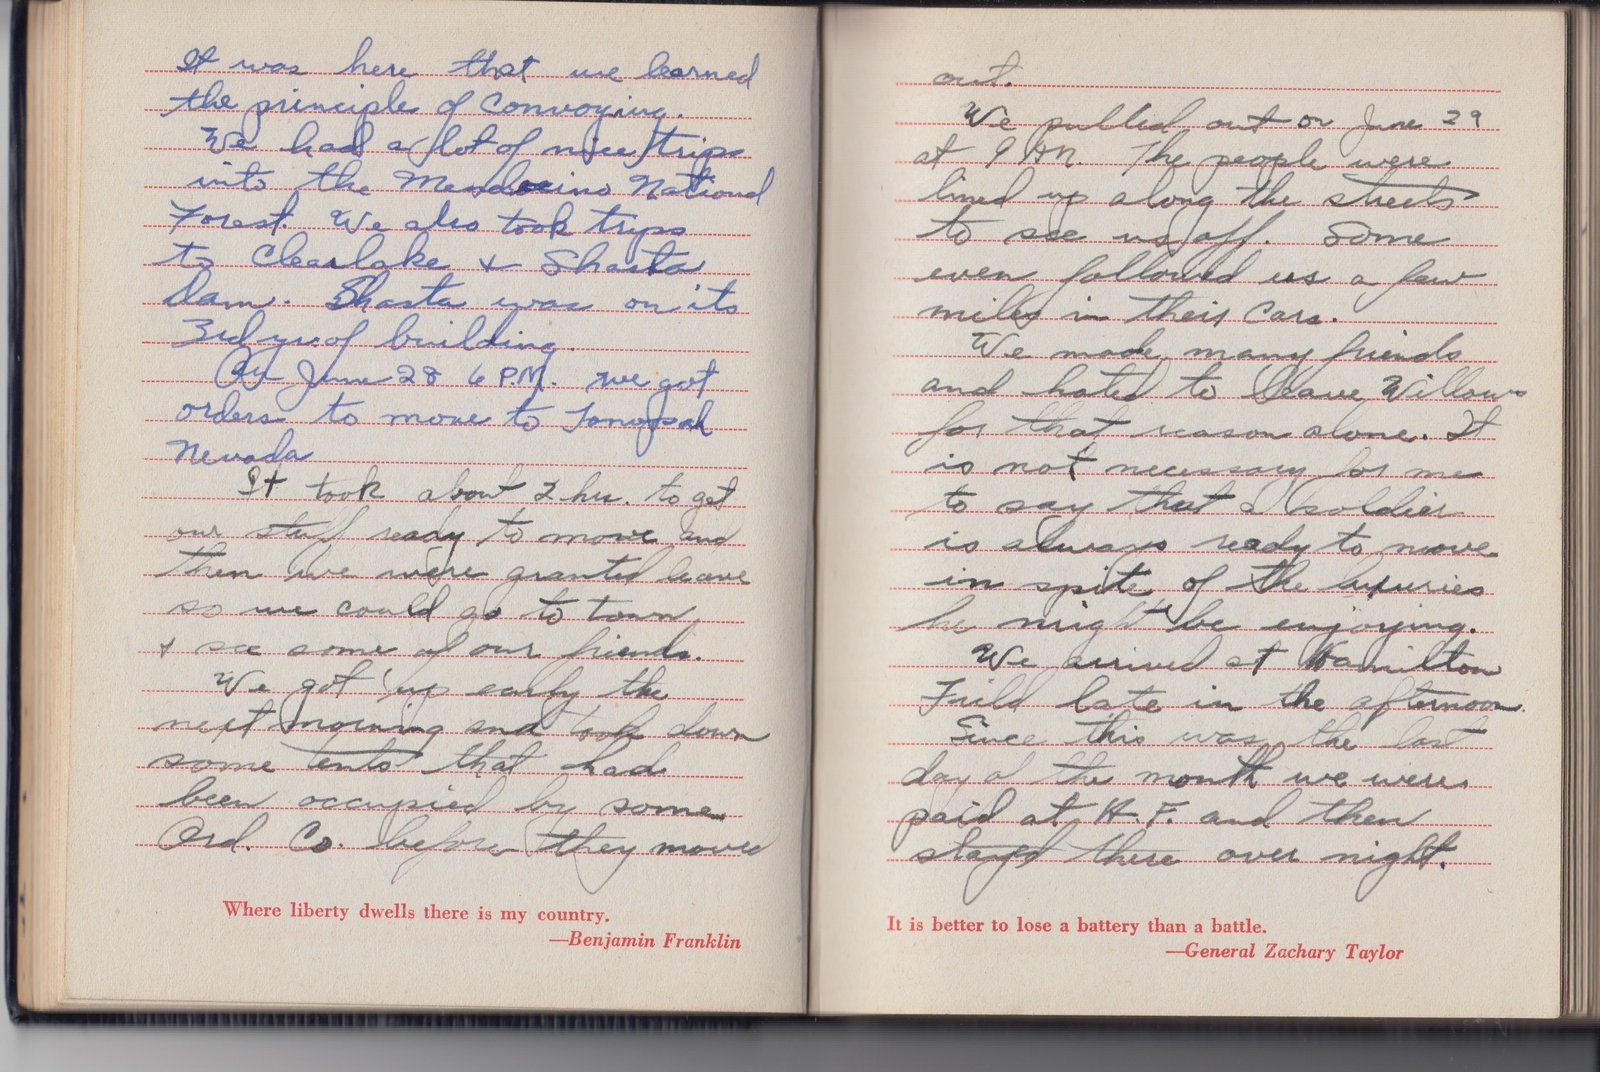 It was here that we learned
the principle of Convoying.
We had a lot of nice trips
into the Mendocino National
Forest. We also took trips
to Clearlake & Shasta
Dam. Shasta was on its
3rd yr. of building.
On June 28 6 P.M. we got
orders to move to Tonopah
Nevada
It took about 2 hrs. to get
our stuff ready to move and
then we were granted leave
so we could go to town
& see some of our friends.
We got up early the
next morning and took down
some tents that had
been occupied by some
Ord. Co. before they moved
Where liberty dwells there is my country.
—Benjamin Franklin
out.
We pulled out on June 29
at 9 AM. The people were
lined up along the streets
to see us off. Some
even followed us a few
miles in their Cars.
We made many friends
and hated to leave Willows
for that reason alone. It
is not necessary for me
to say that a soldier
is always ready to move
in spite of the luxuries
he might be enjoying.
We arrived at Hamilton
Field late in the afternoon.
Since this was the last
day of the month we were
paid at H.F. and then
stayed there over night.
It is better to lose a battery than a battle.
—General Zachary Taylor